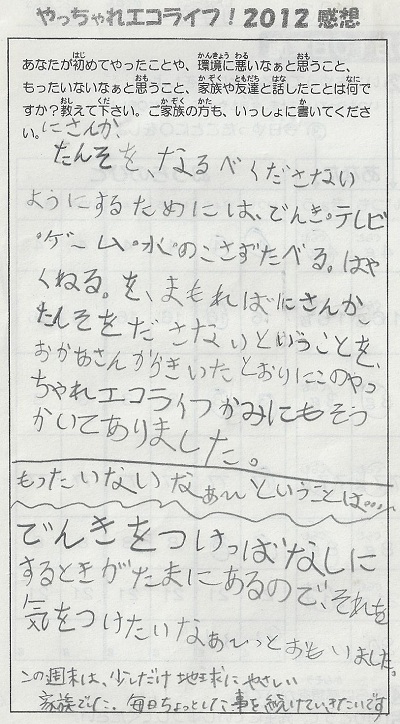 やっちゃれエコライフ！2012 感想
あなたが初めてやったことや、環境に悪いなぁと思うこと、
もったいないなぁと思うこと、家族や友達と話したことは何で
すか？教えて下さい。ご家族の方も、いっしょに書いてくださ
い。にさんか
たんそを、なるべくださない
ようにするためには、でんき。テレビ
。ゲーム。水。のこさずたべる。はや
くねる。を、まもればにさんか
たんそをださないということを、
おかあさんからきいたとおりにこのやっ
ちゃれエコライフかみにもそう
かいてありました。
もったいないなぁ〜ということは…
でんきをつけっぱなしに
するときがたまにあるので、それを
気をつけたいなぁ〜っとおもいました。
この週末は、少しだけ地球にやさしい
家族でした。毎日ちょっとした事を続けていきたいです